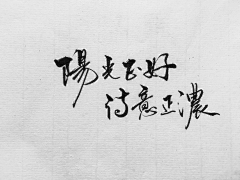 陽光正好
诗意正濃